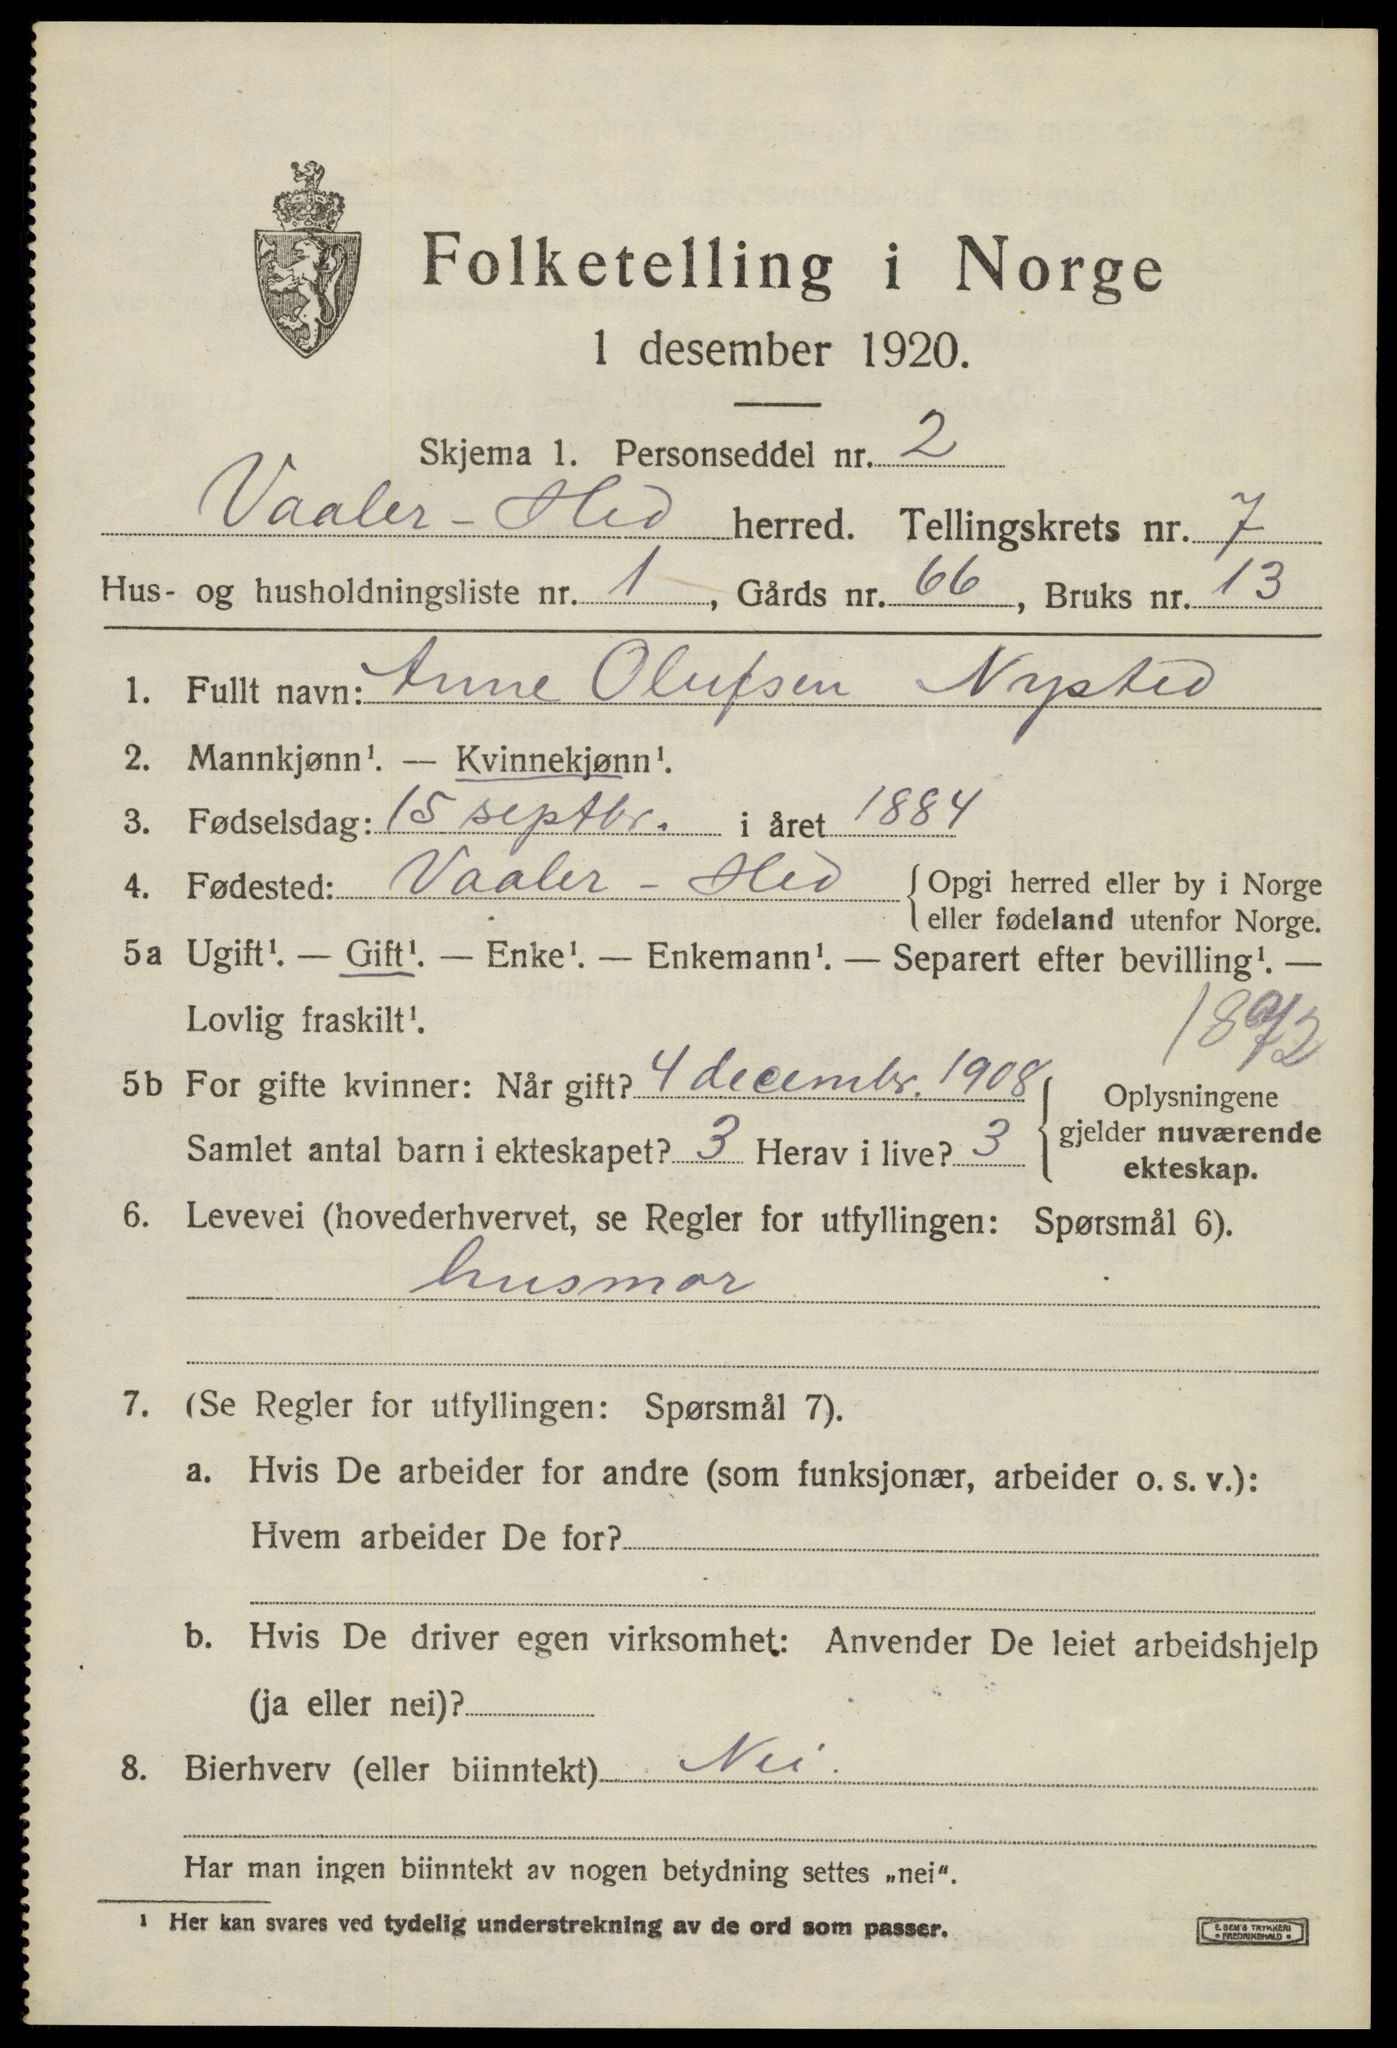 Folketelling i Norge
1 desember 1920.
Skjema 1. Personseddel nr. 2
Vaaler - Hed herred. Tellingskrets nr. 7
Hus- og husholdningsliste nr. 1, Gårds nr. 66, Bruks nr. 13
1. Fullt navn: Anne Olufsen Nysted
2. Mannkjønn¹. — Kvinnekjønn¹.
3. Fødselsdag: 15 septbr. i året 1884
4. Fødested: Vaaler - Hed { Opgi herred eller by i Norge
eller fødeland utenfor Norge.
5a Ugift¹. — Gift¹. — Enke¹. — Enkemann¹. — Separert efter bevilling¹. —
Lovlig fraskilt¹.
5b For gifte kvinner: Når gift? 4 decembr. 1908 { Oplysningene
gjelder nuværende
Samlet antal barn i ekteskapet? 3 Herav i live? 3
ekteskap.
6. Levevei (hovederhvervet, se Regler for utfyllingen: Spørsmål 6).
husmor
7. (Se Regler for utfyllingen: Spørsmål 7).
a. Hvis De arbeider for andre (som funksjonær, arbeider o. s. v.):
Hvem arbeider De for?
b. Hvis De driver egen virksomhet: Anvender De leiet arbeidshjelp
(ja eller nei)?
8. Bierhverv (eller biinntekt) Nei.
Har man ingen biinntekt av nogen betydning settes „nei“.
¹ Her kan svares ved tydelig understrekning av de ord som passer.
E. SEM'S TRYKKERI
* FREDRIKSHALD *